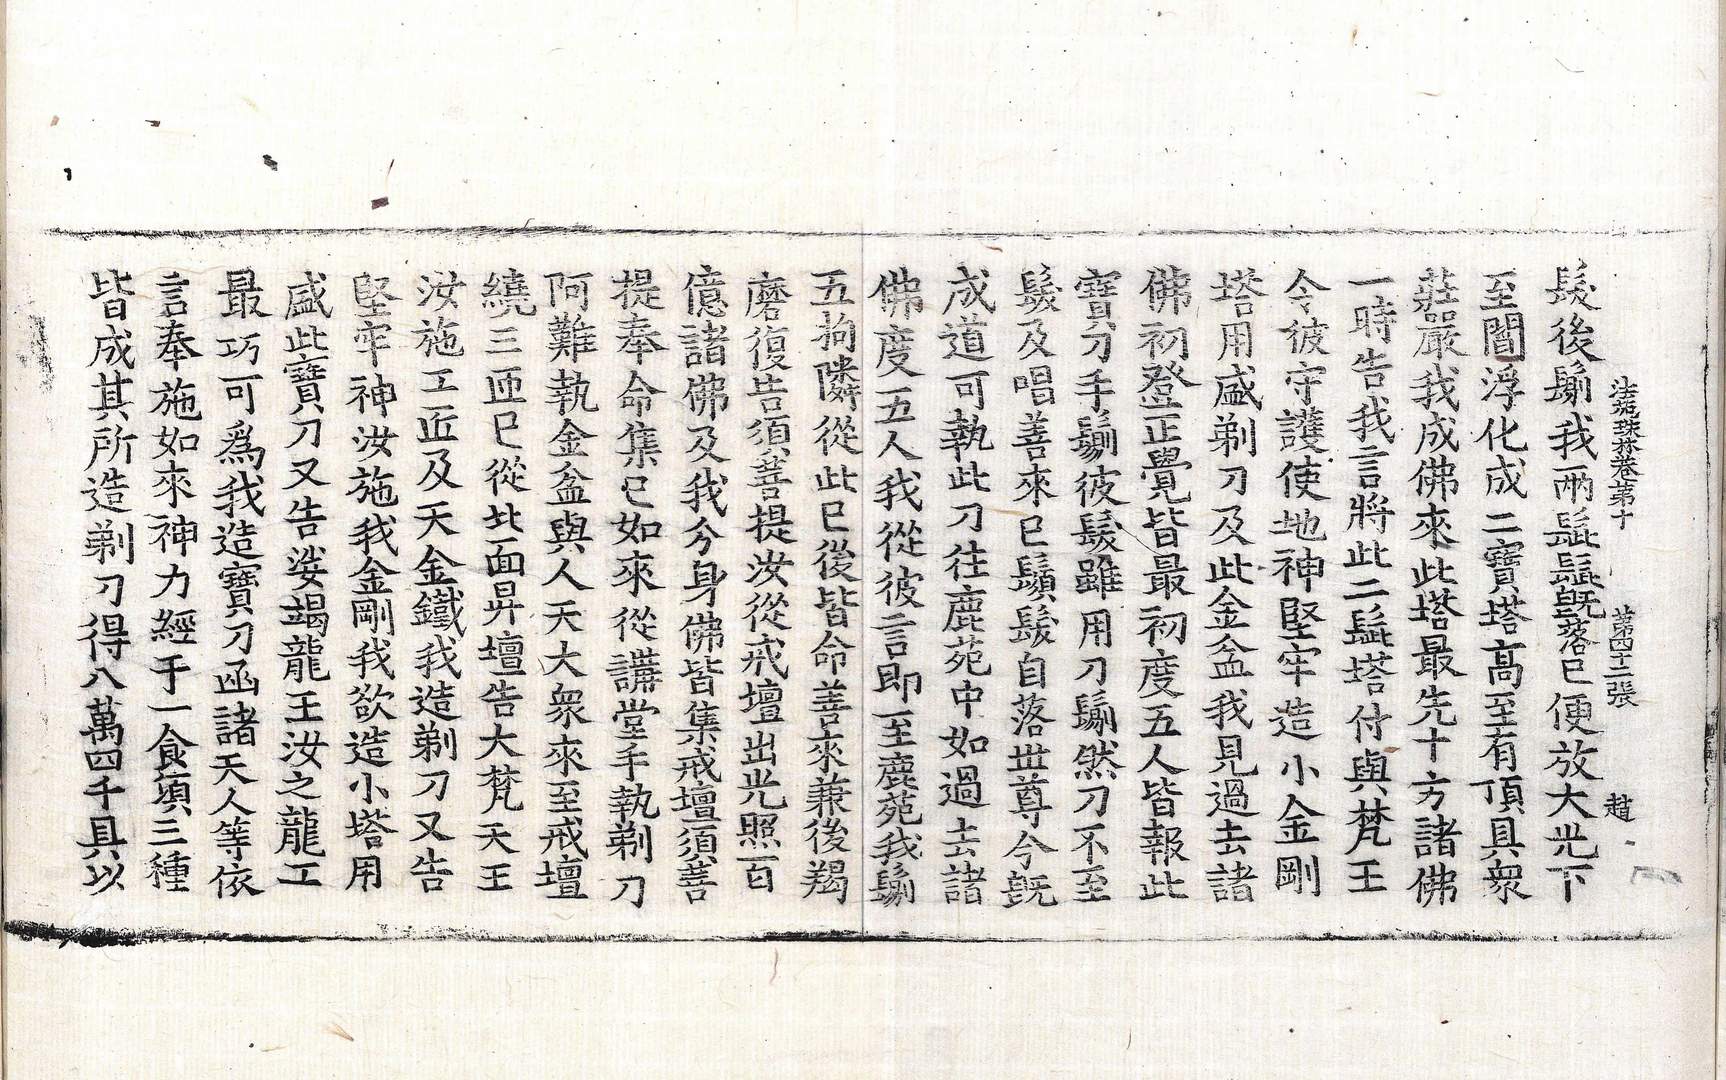 法苑珠林卷第十 第四十二張 趙
髮後鬀我兩髭髭旣落已便放大光下
至閻浮化成二寶塔高至有頂具衆
莊嚴我成佛來此塔最先十方諸佛
一時告我言將此二髭塔付與梵王
令彼守護使地神堅牢造小金剛
塔用盛剃刀及此金盆我見過去諸
佛初登正覺皆最初度五人皆報此
寶刀手鬀彼髮雖用刀鬀然刀不至
髮及唱善來已鬚髮自落世尊今旣
成道可執此刀往鹿苑中如過去諸
佛度五人我從彼言即至鹿苑我鬀
五拘隣從此已後皆命善來兼後羯
磨復告須菩提汝從戒壇出光照百
億諸佛及我分身佛皆集戒壇須菩
提奉命集已如來從講堂手執剃刀
阿難執金盆與人天大衆來至戒壇
繞三匝已從北面昇壇告大梵天王
汝施工匠及天金鐵我造剃刀又告
堅牢神汝施我金剛我欲造小塔用
盛此寶刀又告娑竭龍王汝之龍工
最巧可爲我造寶刀函諸天人等依
言奉施如來神力經于一食頃三種
皆成其所造剃刀得八萬四千具以